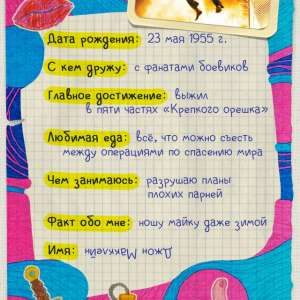 Дата рождения: 23 мая 1955 г.
С кем дружу: с фанатами боевиков
Главное достижение: выжил
в пяти частях «Крепкого орешка»
Любимая еда: всё, что можно съесть
между операциями по спасению мира
Чем занимаюсь: разрушаю планы
плохих парней
Факт обо мне: ношу майку даже зимой
Имя: Джон Макклейн